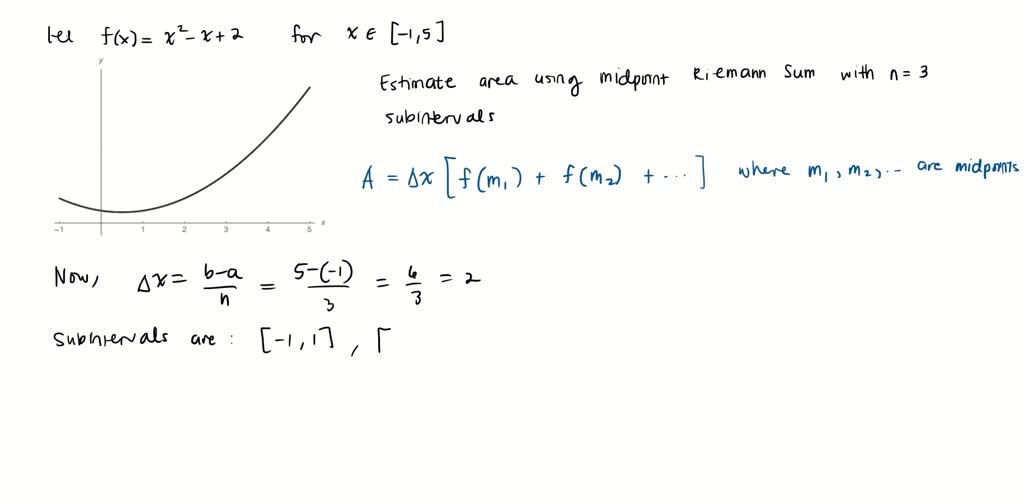 let f(x) = x² - x + 2 for x ∈ [-1, 5]
y
Estimate area using midpoint Riemann Sum with n = 3
subintervals
A = Δx [ f(m₁) + f(m₂) + ⋯ ] where m₁, m₂, .. are midpoints
-1 1 2 3 4 5 x
Now, Δx = b-a/n = 5-(-1)/3 = 6/3 = 2
Subintervals are : [-1, 1] , [